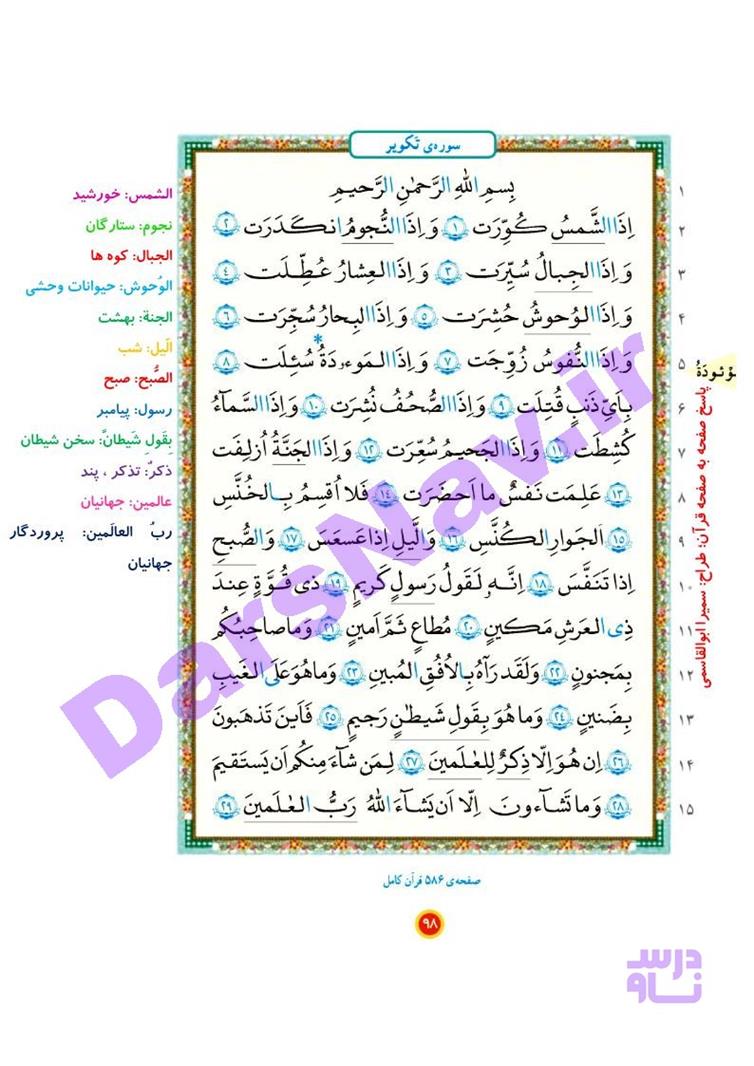 سوره‌ی تکویر
بِسمِ اللّٰهِ الرَّحمٰنِ الرَّحیمِ ۱
اِذَا الشَّمسُ کُوِّرَت ۱ وَ اِذَا النُّجومُ انکَدَرَت ۲ ۲
وَ اِذَا الجِبالُ سُیِّرَت ۳ وَ اِذَا العِشارُ عُطِّلَت ۴ ۳
وَ اِذَا الوُحوشُ حُشِرَت ۵ وَ اِذَا البِحارُ سُجِّرَت ۶ ۴
وَ اِذَا النُّفوسُ زُوِّجَت ۷ وَ اِذَا المَوءودَةُ* سُئِلَت ۸ ۵
بِاَیِّ ذَنبٍ قُتِلَت ۹ وَ اِذَا الصُّحُفُ نُشِرَت ۱۰ وَ اِذَا السَّماۤءُ ۶
کُشِطَت ۱۱ وَ اِذَا الجَحیمُ سُعِّرَت ۱۲ وَ اِذَا الجَنَّةُ اُزلِفَت ۷
۱۳ عَلِمَت نَفسٌ ما اَحضَرَت ۱۴ فَلا اُقسِمُ بِالخُنَّسِ ۸
۱۵ اَلجَوارِ الکُنَّسِ ۱۶ وَ الَّیلِ اِذا عَسعَسَ ۱۷ وَ الصُّبحِ ۹
اِذا تَنَفَّسَ ۱۸ اِنَّهٗ لَقَولُ رَسولٍ کَریمٍ ۱۹ ذی قُوَّةٍ عِندَ ۱۰
ذِی العَرشِ مَکینٍ ۲۰ مُطاعٍ ثَمَّ اَمینٍ ۲۱ وَ ما صاحِبُکُم ۱۱
بِمَجنونٍ ۲۲ وَ لَقَد رَآهُ بِالاُفُقِ المُبینِ ۲۳ وَ ما هُوَ عَلَی الغَیبِ ۱۲
بِضَنینٍ ۲۴ وَ ما هُوَ بِقَولِ شَیطٰنٍ رَجیمٍ ۲۵ فَاَینَ تَذهَبونَ ۱۳
۲۶ اِن هُوَ اِلّا ذِکرٌ لِلعٰلَمینَ ۲۷ لِمَن شاۤءَ مِنکُم اَن یَستَقیمَ ۱۴
۲۸ وَ ما تَشاۤءونَ اِلّا اَن یَشاۤءَ اللّٰهُ رَبُّ العٰلَمینَ ۲۹ ۱۵
الشمس: خورشید
نجوم: ستارگان
الجبال: کوه ها
الوُحوش: حیوانات وحشی
الجنة: بهشت
الَیل: شب
الصُّبح: صبح
رسول: پیامبر
بِقَولِ شَیطانٌ: سخن شیطان
ذکرٌ: تذکر ، پند
عالمین: جهانیان
ربُ العالَمین: پروردگار
جهانیان
پاسخ صفحه به صفحه قرآن: طراح: سمیرا ابوالقاسمی
صفحه‌ی ۵۸۶ قرآن کامل
۹۸
DarsNav.ir
درس
ناو